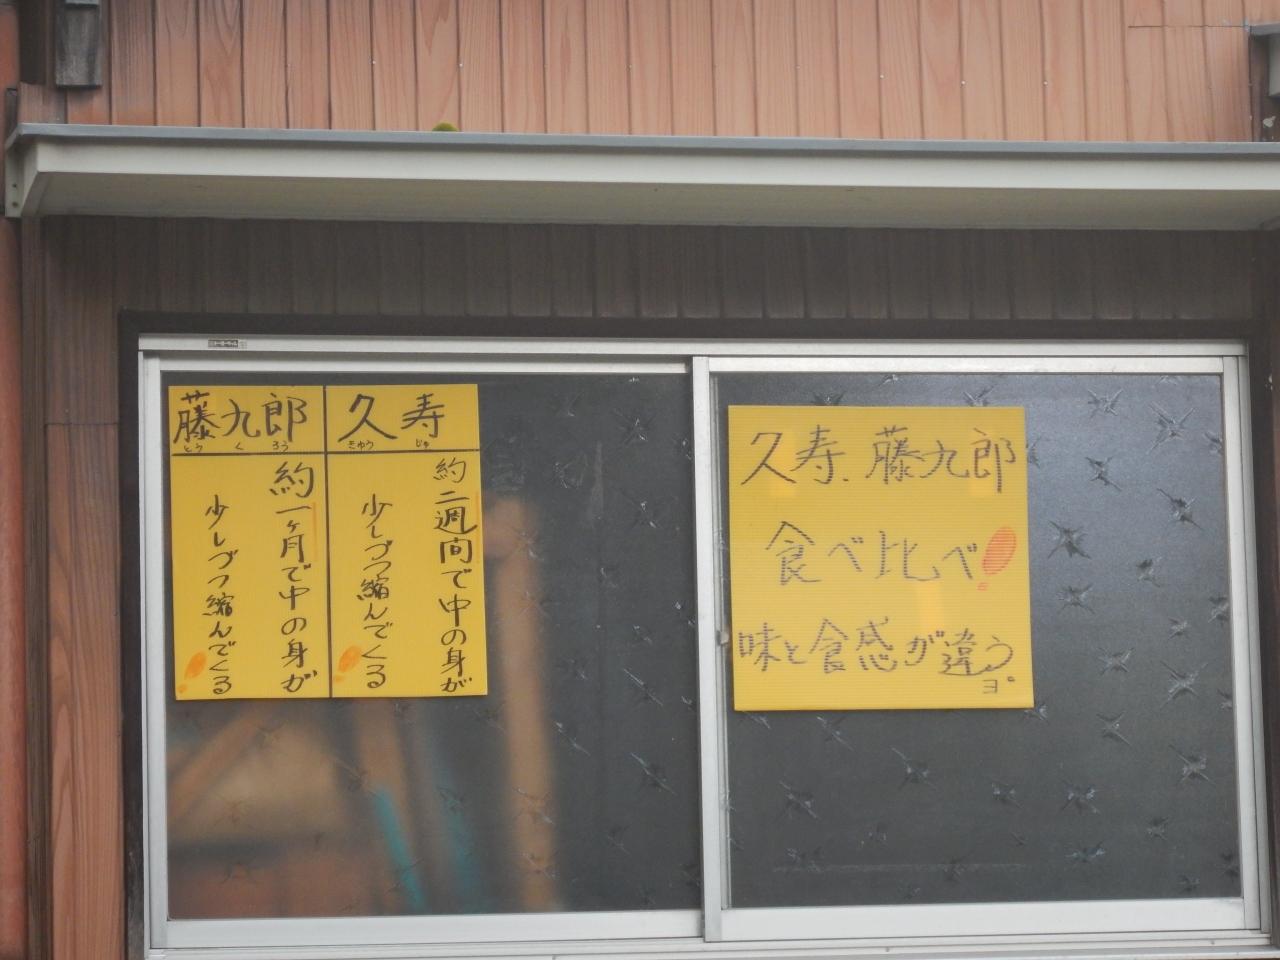 久寿
きゅうじゅ
約二週間で中の身が
少しづつ縮んでくる
藤九郎
とうくろう
約一ヶ月で中の身が
少しづつ縮んでくる
久寿、藤九郎
食べ比べ!
味と食感が違う
ヨ°